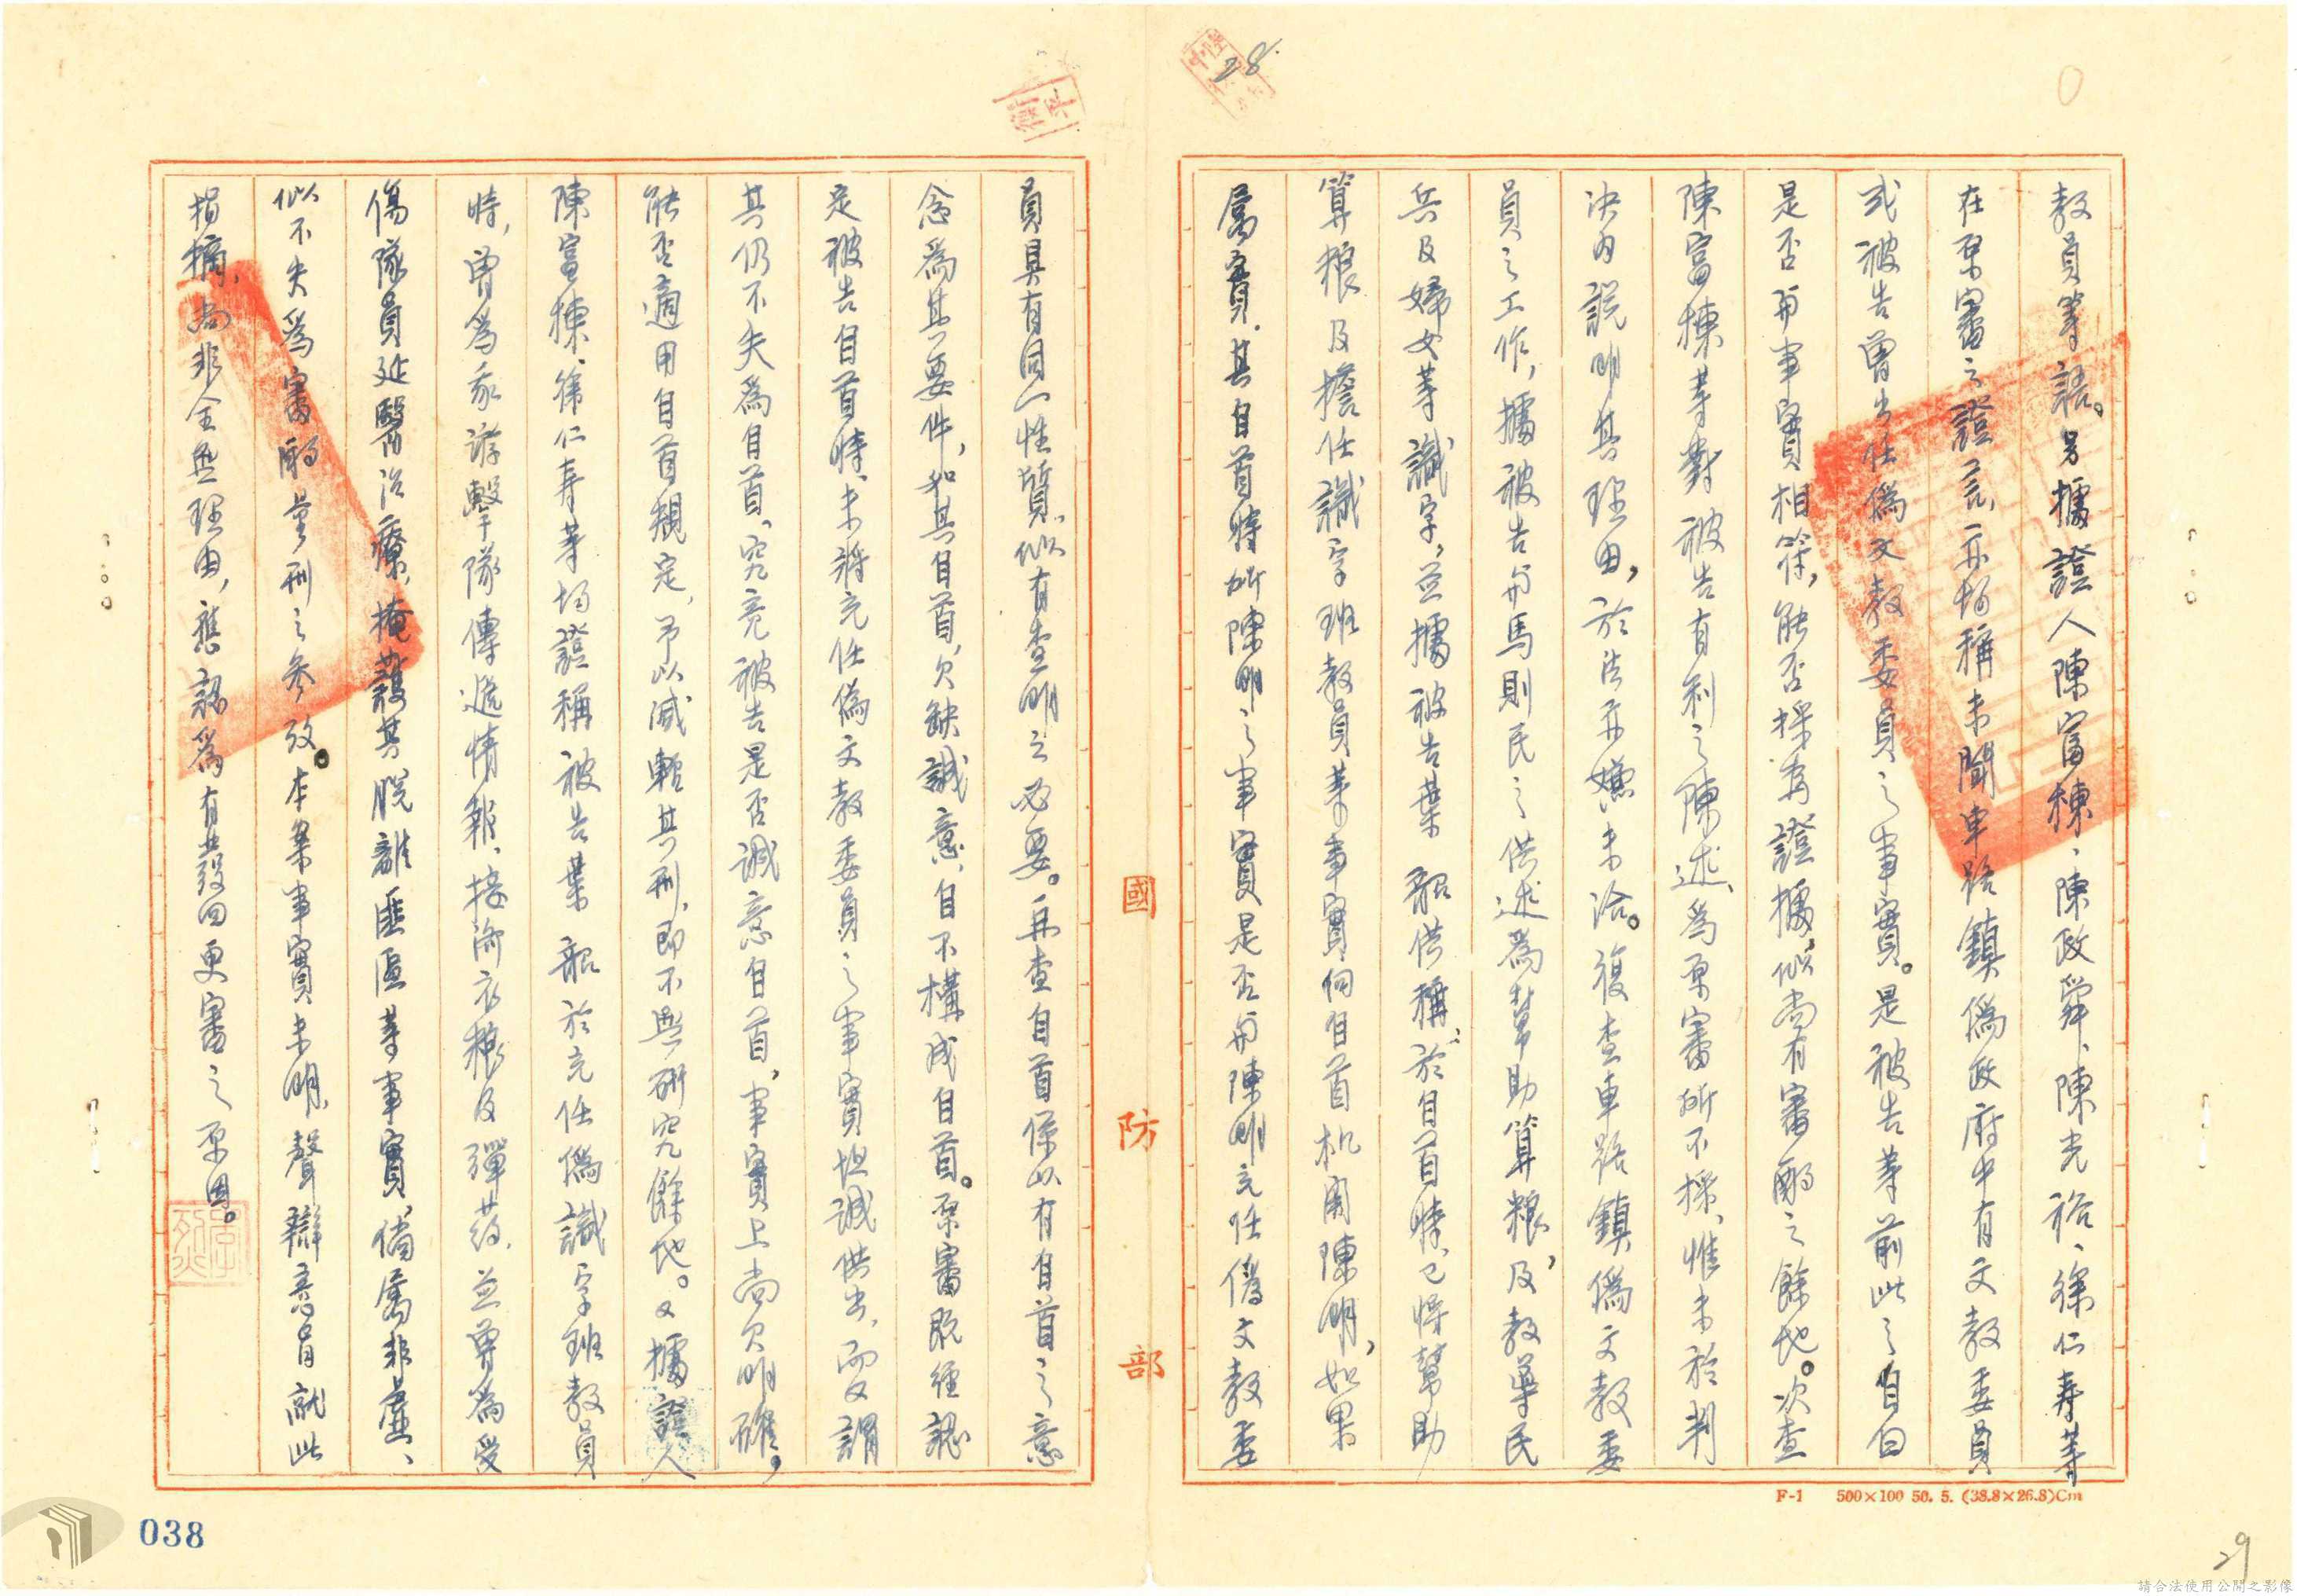 28.
教員等語。另據證人陳富棟、陳政舜、陳光裕、徐仁寿等
在原審之證言、亦均稱未聞車路鎮偽政府中有文教委員
或被告曾出任偽文教委員之事實。是被告等前此之自白
是否與事實相符,能否採為證據,似尚有審酌之餘地。次查
陳富棟等對被告有利之陳述、為原審所不採、惟未於判
決內說明其理由,於法亦嫌未洽。復查車路鎮偽文教委
員之工作,據被告與馬則民之供述為幫助算粮,及教導民
兵及婦女等識字,並據被告葉 韶供稱:於自首時、已將幫助
算粮及擔任識字班教員等事實向自首机関陳明,如果
屬實、其自首時所陳明之事實是否與陳明充任偽文教委
國防部
員具有同一性質、似有查明之必要。再查自首係以有自首之意
念為其要件,如其自首、欠缺誠意、自不構成自首。原審既經認
定被告自首時、未將充任偽文教委員之事實坦誠供出、而又謂
其仍不失為自首、究竟被告是否誠意自首,事實上尚欠明確,
能否適用自首規定,予以減輕其刑,即不無研究餘地。又據證人
陳富棟、徐仁寿等均證稱被告葉 韶於充任偽識字班教員
時,曾為我游擊隊傳遞情報、接濟衣粮及彈葯,並曾為受
傷隊員延醫治療,掩護其脫離匪區等事實,倘屬非虛、
似不失為審酌量刑之參攷。本案事實未明,聲辯意旨就此
指摘,尚非全無理由,應認為有發回更審之原因。
F-1 500×100 50. 5. (38.8×26.8)Cm
038
29
請合法使用公開之影像